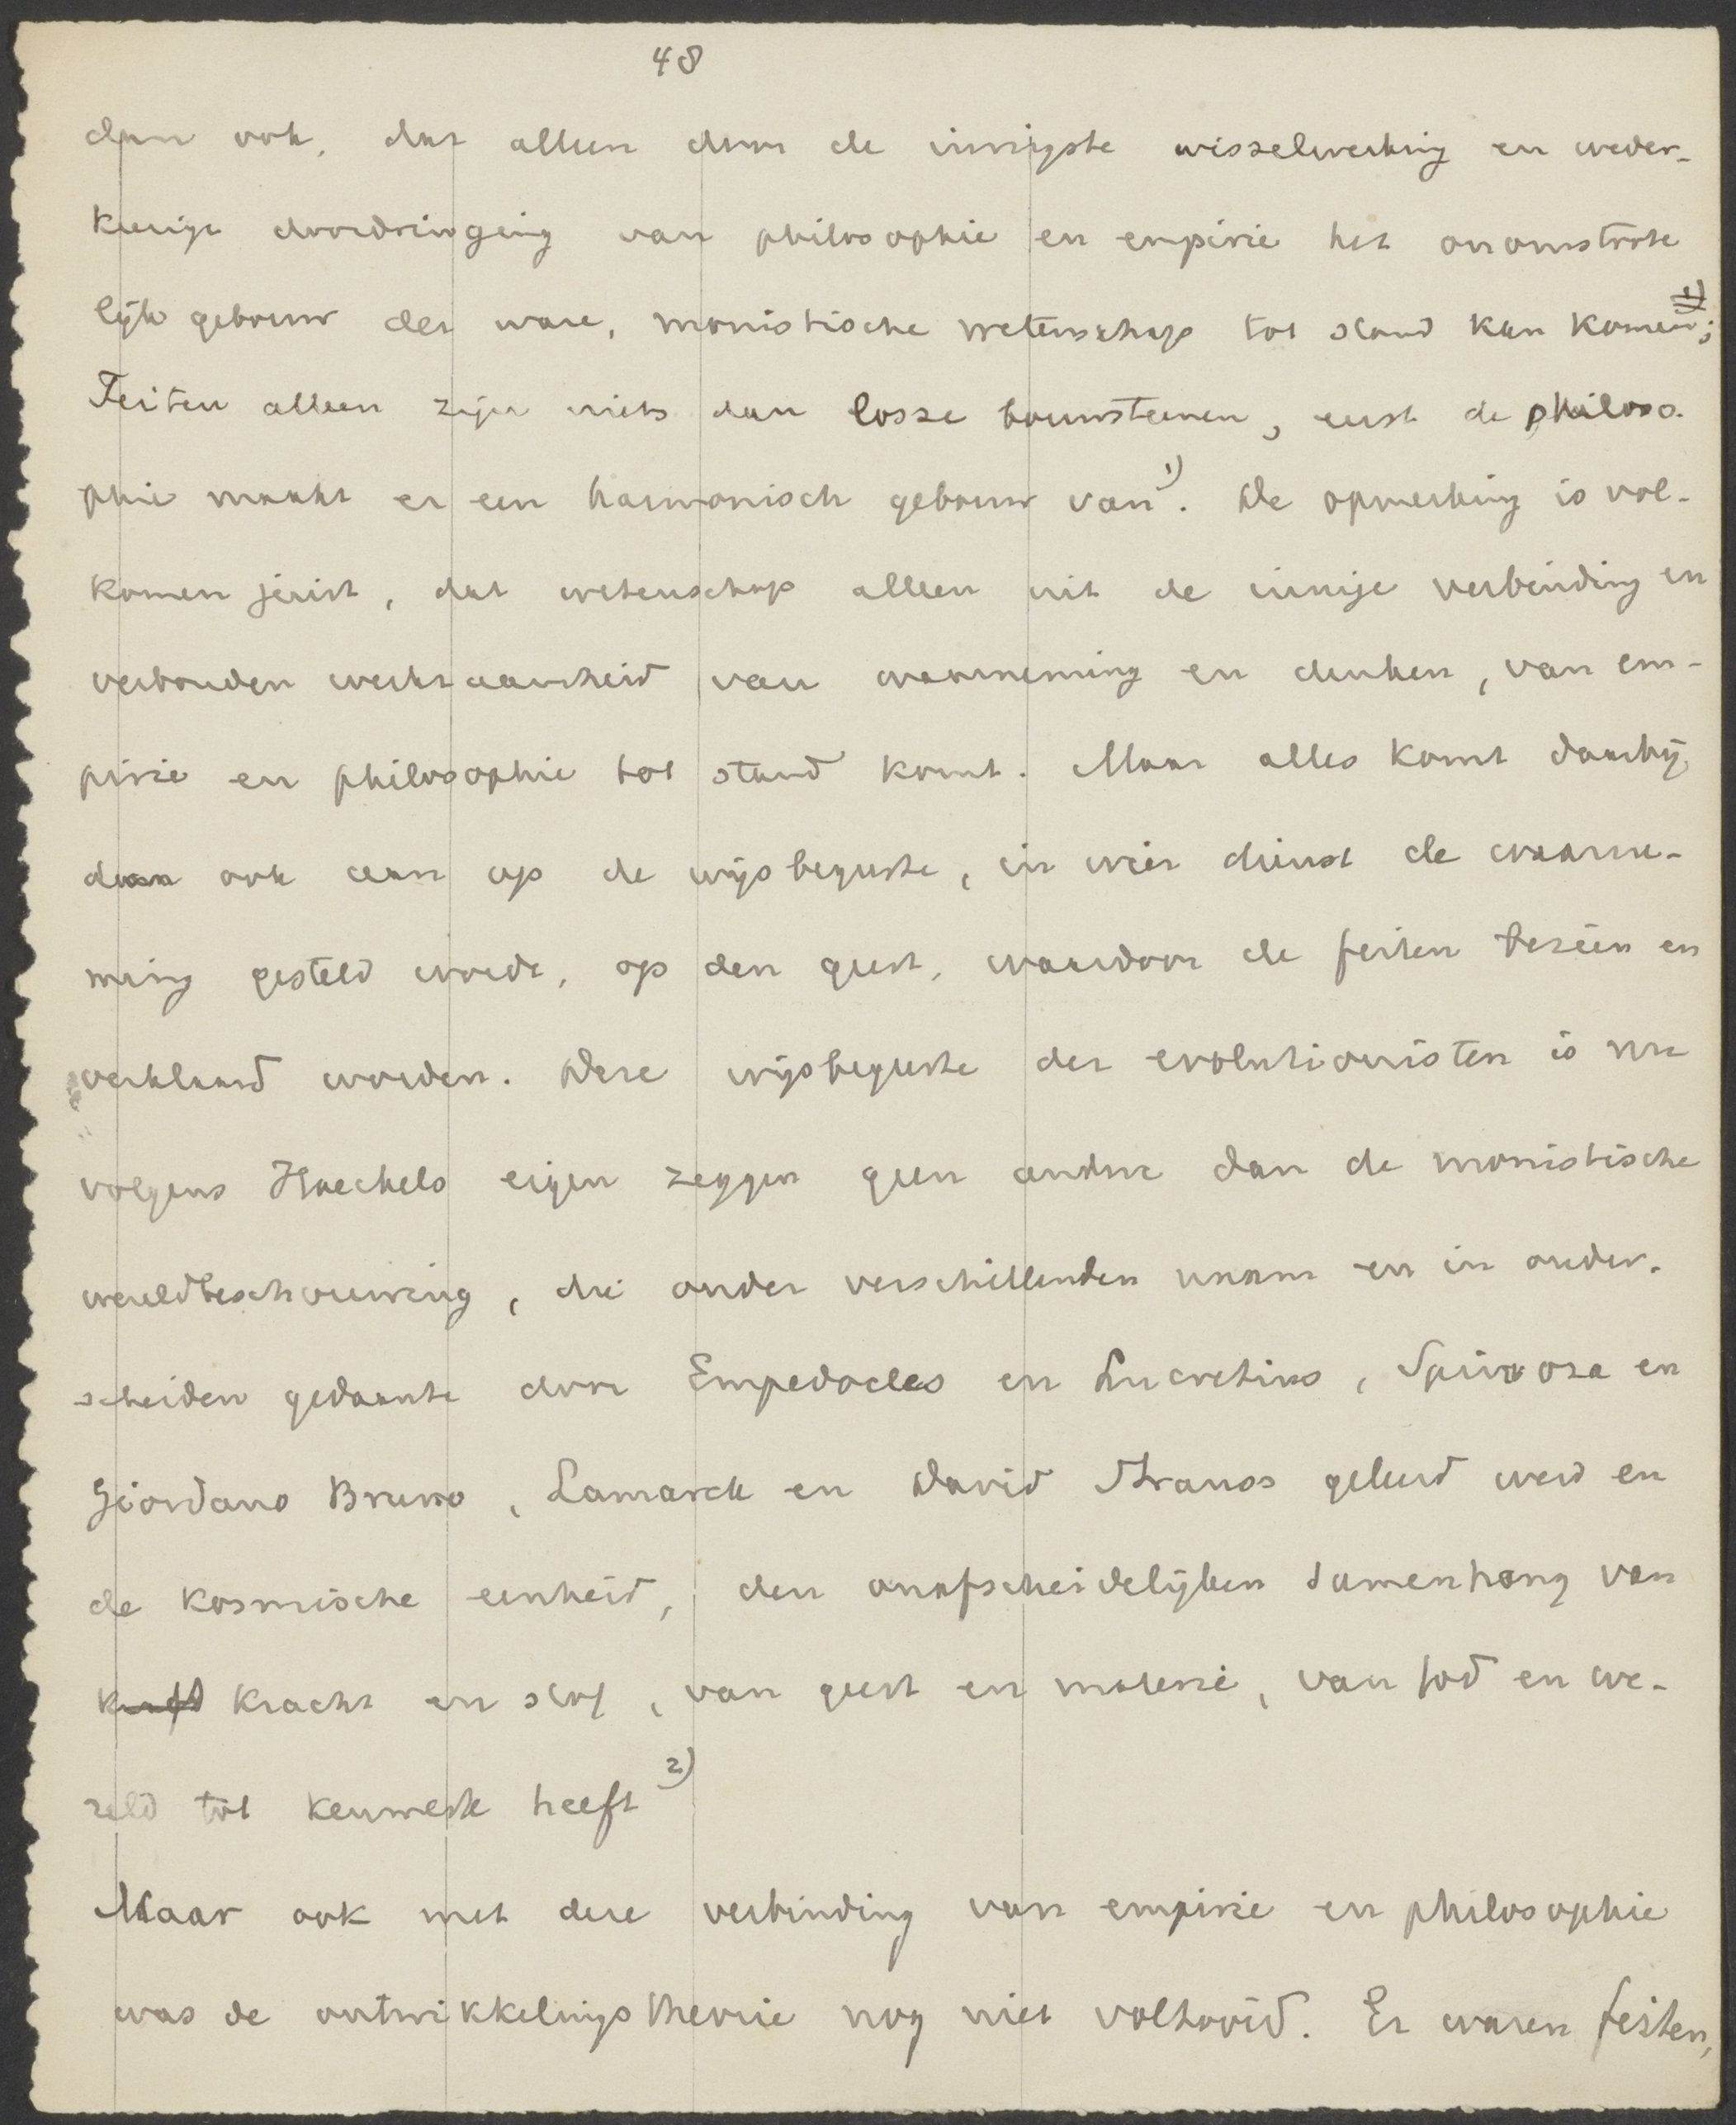 48
dan ook, dat alleen door de innigste wisselwerking en weder-
keerige doordringing van philosophie en empirie het onomstoote
lijk gebouw der ware, monistische wetenschap tot stand kan komen;
Feiten alleen zijn niets dan losse bouwsteenen, eerst de philoso-
phie maakt er een harmonisch gebouw van 1). De opmerking is vol-
komen juist, dat wetenschap alleen uit de innige verbinding en
verbonden werkzaamheid van waarneming en denken, van em-
pirie en philosophie tot stand komt. Maar alles komt daarbij
dan ook aan op de wijsbegeerte, in wier dienst de waarne-
ming gesteld wordt, op den geest, waardoor de feiten bezien en
verklaard worden. Deze wijsbegeerte der evolutionisten is nu
volgens Haeckels eigen zeggen geen andere dan de monistische
wereldbeschouwing, die onder verschillenden naam en in onder-
scheiden gedaante door Empedocles en Lucretius, Spinoza en
Giordano Bruno, Lamarck en David Strauss geleerd werd en
de kosmische eenheid, den onafscheidelijken samenhang van
kracht en stof, van geest en materie, van God en we-
reld tot kenmerk heeft 2)
Maar ook met deze verbinding van empirie en philosophie
was de ontwikkelingstheorie nog niet voltooid. Er waren feiten,